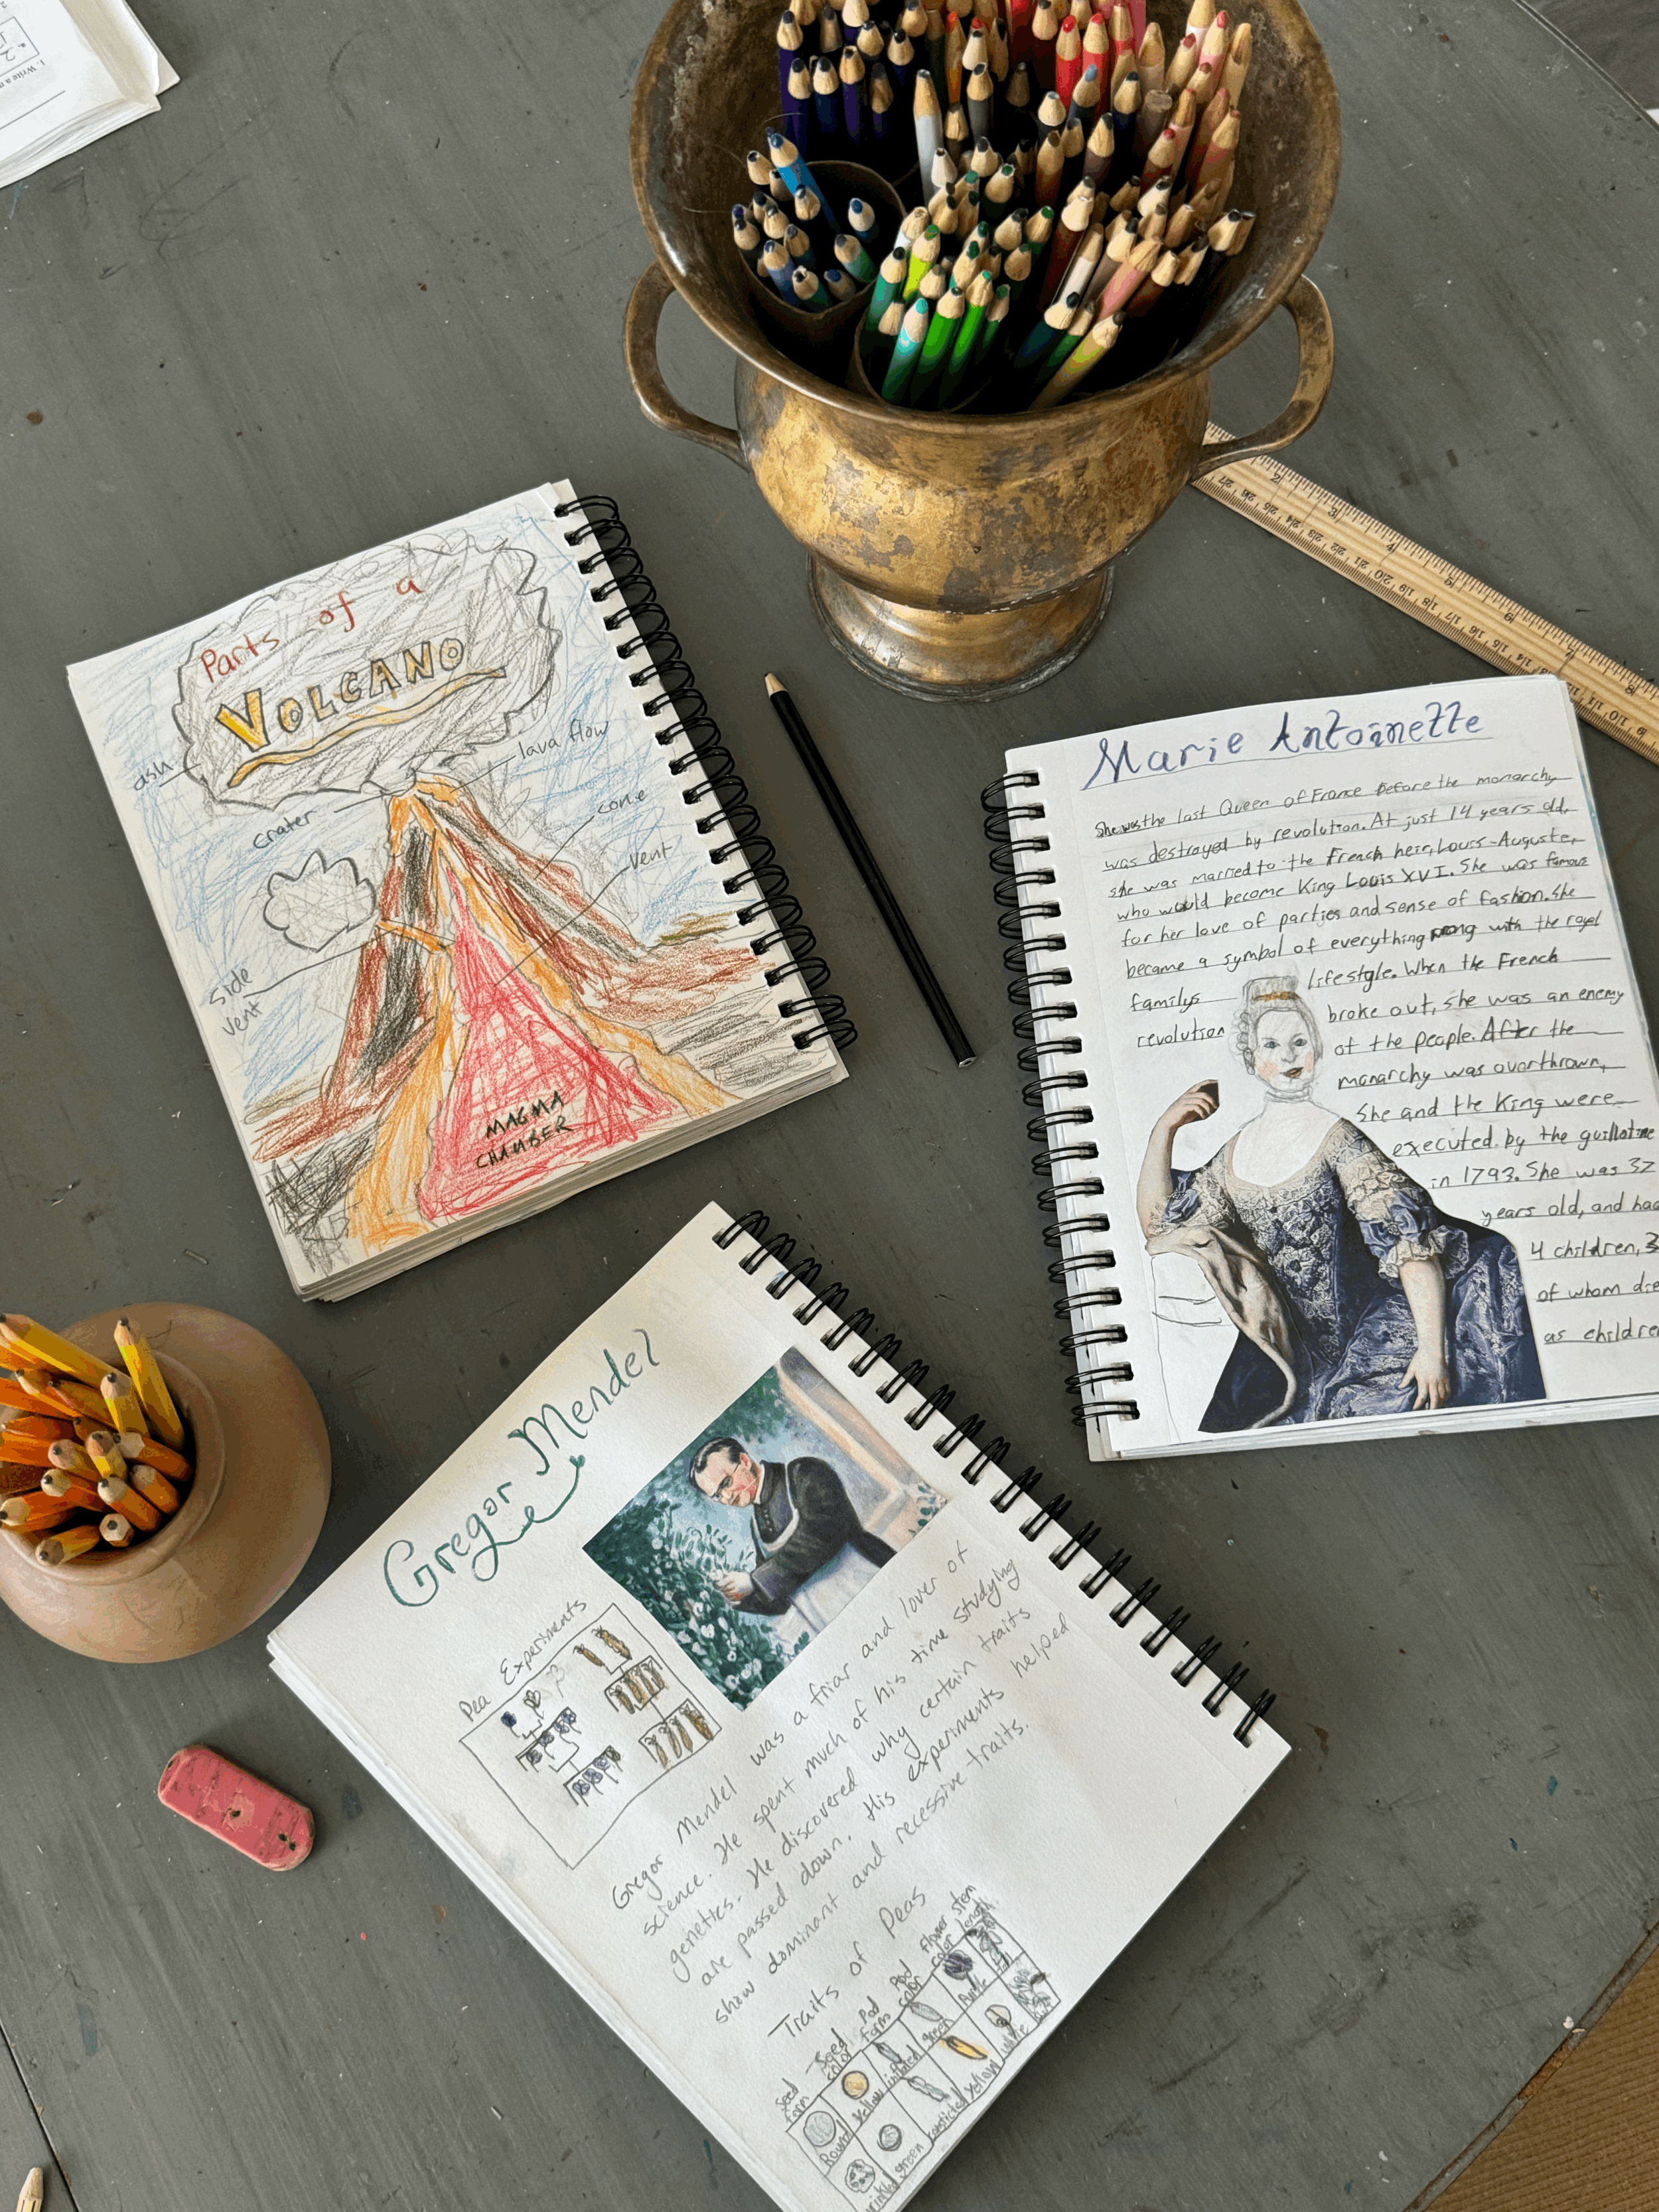 1. Write a n
Parts of a
VOLCANO
ash
lava flow
crater
cone
vent
side
vent
MAGMA
CHAMBER
Marie Antoinette
She was the last Queen of France before the monarchy
was destroyed by revolution. At just 14 years old,
she was married to the French heir, Louis-Auguste,
who would become King Louis XVI. She was famous
for her love of parties and sense of fashion. She
became a symbol of everything wrong with the royal
familys lifestyle. When the French
revolution broke out, she was an enemy
of the people. After the
monarchy was overthrown,
She and the King were
executed by the guillotine
in 1793. She was 37
years old, and had
4 children, 3
of whom die
as children
Gregor Mendel
Pea Experiments
Gregor Mendel was a friar and lover of
science. He spent much of his time studying
genetics. He discovered why certain traits
are passed down. His experiments helped
show dominant and recessive traits.
Traits of Peas
Seed form
Seed color
Pod form
Pod color
Flower color
Stem length
Round
Yellow
inflated
green
Purple
wrinkled
green
constricted
yellow
white